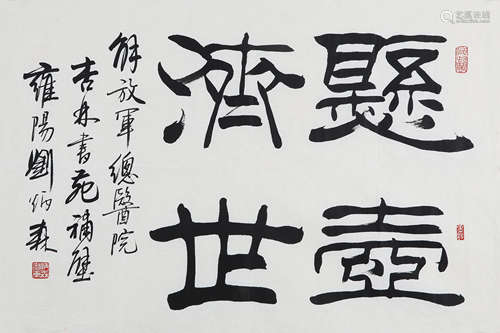 懸壺
濟世
解放軍總醫院
杏林書苑補壁
雍陽劉炳森